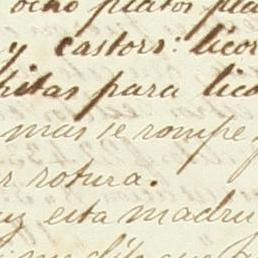 ocho platos pla
y castors: licor
itas para lico
mas se rompe
r rotura.
uz esta madru